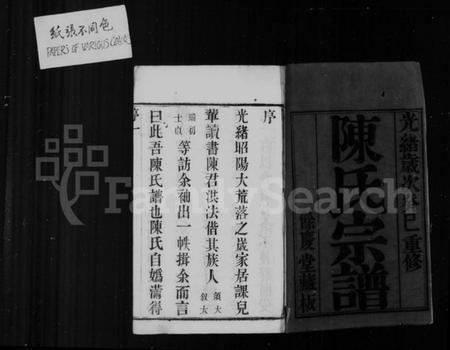 紙張不同色
PAPERS OF VARIOUS COLORS
光緒歲次癸巳重修
陳氏宗譜
餘慶堂藏板
序
光緒昭陽大荒落之歲家居課兒
輩讀書陳君淇法偕其族人 頌大 叙太
瑞梢 士貞 等訪余袖出一帙揖余而言
曰此吾陳氏譜也陳氏自嬀滿得
序一
FamilySearch